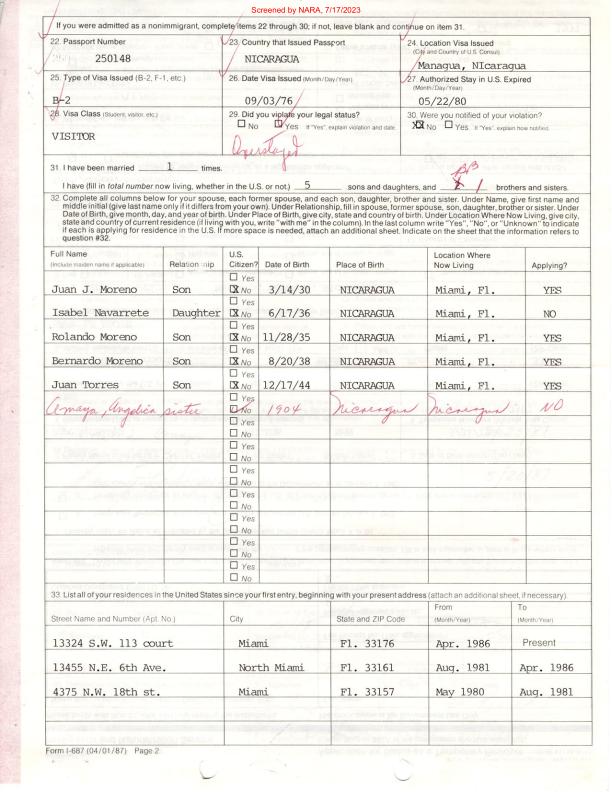 Screened by NARA, 7/17/2023
If you were admitted as a nonimmigrant, complete items 22 through 30; if not, leave blank and continue on item 31.
22. Passport Number
250148
23. Country that Issued Passport
NICARAGUA
24. Location Visa Issued
(City and Country of U.S. Consul)
Managua, Nicaragua
25. Type of Visa Issued (B-2, F-1, etc.)
B-2
26. Date Visa Issued (Month/Day/Year)
09/03/76
27. Authorized Stay in U.S. Expired
(Month/Day/Year)
05/22/80
28. Visa Class (Student, visitor, etc.)
VISITOR
29. Did you violate your legal status?
☐ No ☑ Yes If "Yes", explain violation and date.
Overstayed
30. Were you notified of your violation?
☒ No ☐ Yes If "Yes", explain how notified.
31. I have been married 1 times.
I have (fill in total number now living, whether in the U.S. or not.) 5 sons and daughters, and 1 brothers and sisters.
32. Complete all columns below for your spouse, each former spouse, and each son, daughter, brother and sister. Under Name, give first name and
middle initial (give last name only if it differs from your own). Under Relationship, fill in spouse, former spouse, son, daughter, brother or sister. Under
Date of Birth, give month, day, and year of birth. Under Place of Birth, give city, state and country of birth. Under Location Where Now Living, give city,
state and country of current residence (if living with you, write "with me" in the column). In the last column write "Yes", "No", or "Unknown" to indicate
if each is applying for residence in the U.S. If more space is needed, attach an additional sheet. Indicate on the sheet that the information refers to
question #32.
Full Name
(Include maiden name if applicable)
Relationship
U.S.
Citizen?
Date of Birth
Place of Birth
Location Where
Now Living
Applying?
☐ Yes
Juan J. Moreno Son ☒ No 3/14/30 NICARAGUA Miami, Fl. YES
☐ Yes
Isabel Navarrete Daughter ☒ No 6/17/36 NICARAGUA Miami, Fl. NO
☐ Yes
Rolando Moreno Son ☒ No 11/28/35 NICARAGUA Miami, Fl. YES
☐ Yes
Bernardo Moreno Son ☒ No 8/20/38 NICARAGUA Miami, Fl. YES
☐ Yes
Juan Torres Son ☒ No 12/17/44 NICARAGUA Miami, Fl. YES
☐ Yes
Amaya, Angelica sister ☑ No 1904 Nicaragua Nicaragua NO
☐ Yes
☐ No
☐ Yes
☐ No
☐ Yes
☐ No
☐ Yes
☐ No
☐ Yes
☐ No
☐ Yes
☐ No
☐ Yes
☐ No
33. List all of your residences in the United States since your first entry, beginning with your present address (attach an additional sheet, if necessary)
Street Name and Number (Apt. No.)
City
State and ZIP Code
From
(Month/Year)
To
(Month/Year)
13324 S.W. 113 court Miami Fl. 33176 Apr. 1986 Present
13455 N.E. 6th Ave. North Miami Fl. 33161 Aug. 1981 Apr. 1986
4375 N.W. 18th st. Miami Fl. 33157 May 1980 Aug. 1981
Form I-687 (04/01/87) Page 2